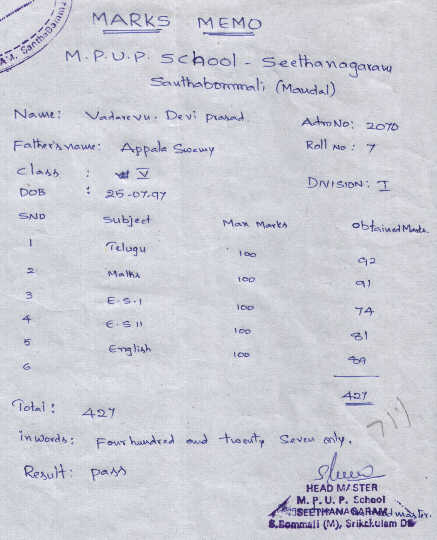 M.M. Santhabommali
MARKS MEMO
M.P.U.P. School - Seethanagaram
Santhabommali (Mandal)
Name: Vadarevu. Devi prasad.
Adm No: 2070
Father's name: Appala Swamy
Roll No: 7
Class : V
DIVISION: I
DOB : 25-07-97
SNO Subject Max Marks Obtained Marks
1 Telugu 100 92
2 Maths 100 91
3 E.S.I 100 74
4 E.S II 100 81
5 English 100 89
6
427
Total: 427
inwords: Four hundred and twenty Seven only.
Result: pass
HEAD MASTER
M. P. U. P. School
SEETHANAGARAM
S.Bommali (M), Srikakulam Dt